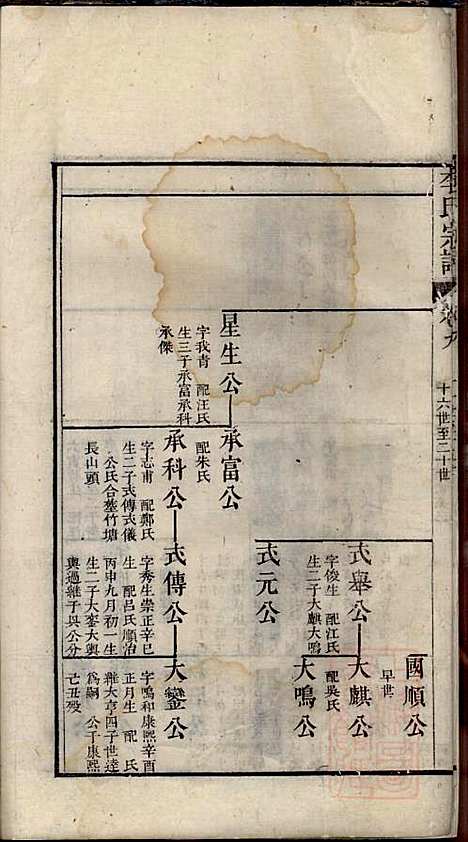 李氏宗譜
卷九
十六世至二十世
國順公
早世
式舉公
字俊生　配江氏
生二子大麒大鳴
大麒公
配吳氏
大鳴公
式元公
星生公
字我青　配汪氏
生三子承富承科
承傑
承富公
配朱氏
承科公
字志甫　配鄭氏
生二子式傳式儀
公氏合塟竹塘
長山頭
式傳公
字秀生崇正辛巳
生　配呂氏順治
丙申九月初一生
生二子大鑾大輿
輿過繼子與公分
大鑾公
字鳴和康熙辛酉
正月生　配　氏
繼大亨四子世達
為嗣　公于康熙
己丑歿